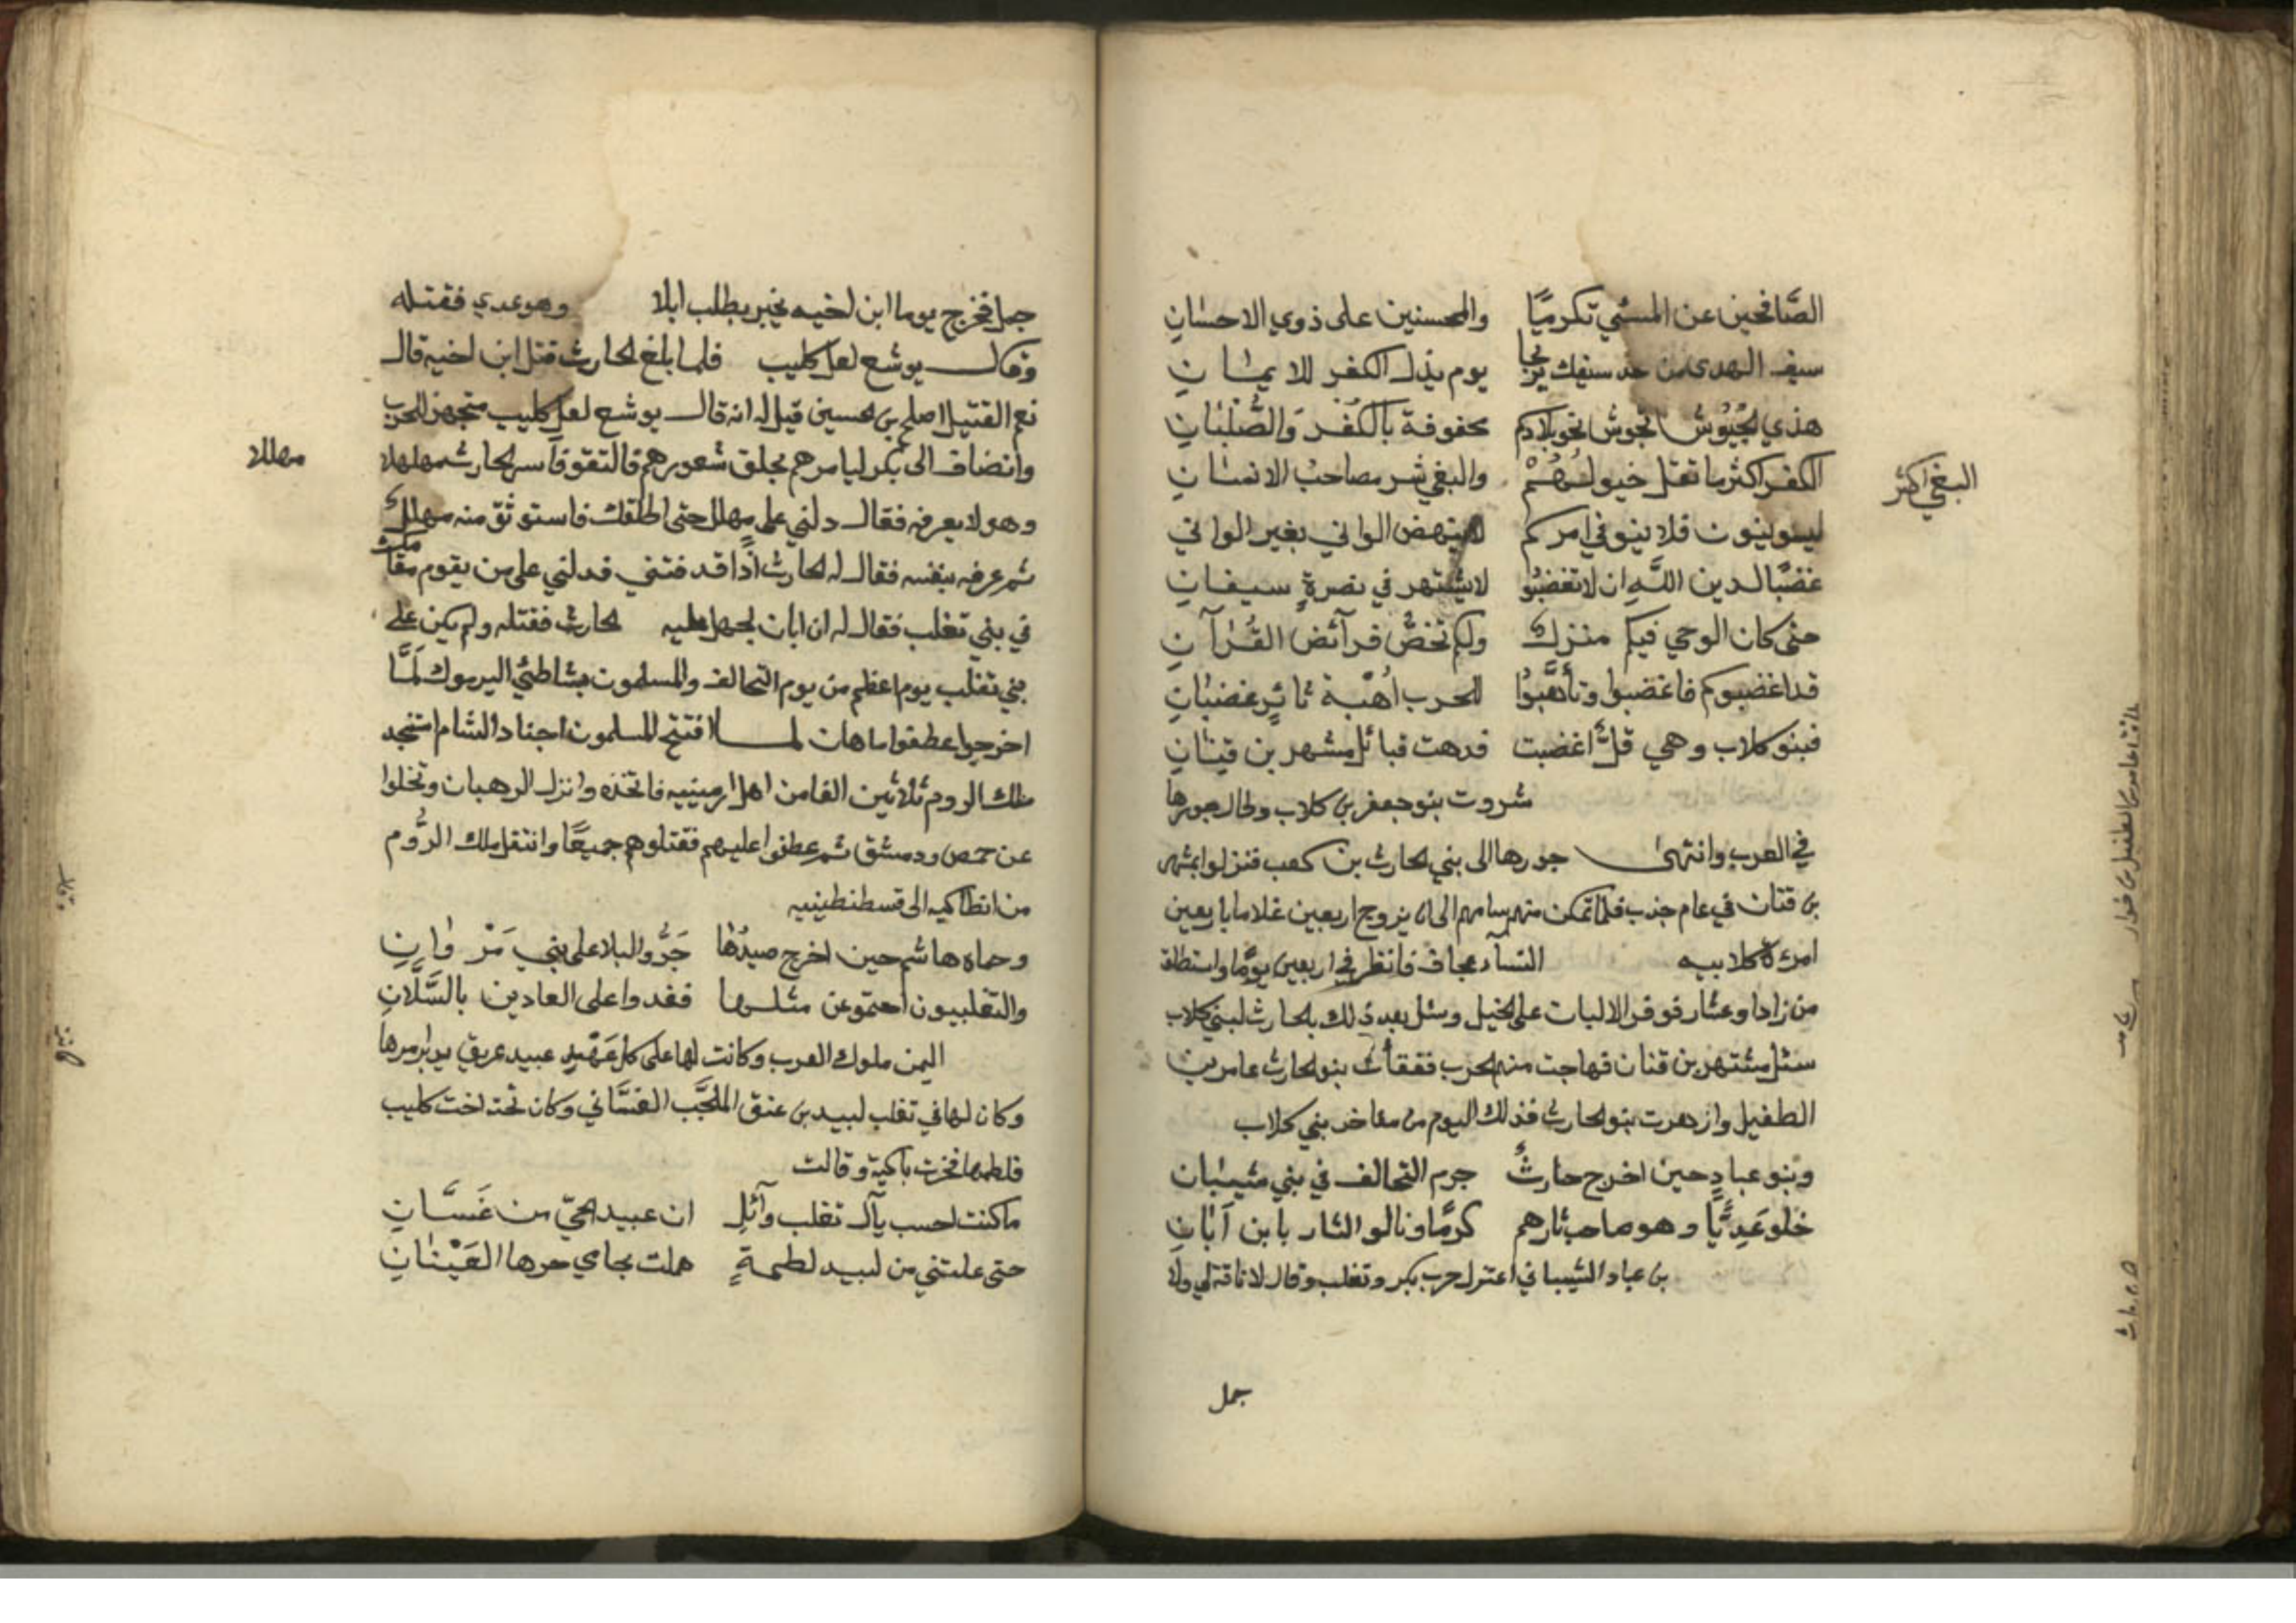 الصَّافحين عن المسئي تكرميًا والمحسنين على ذوي الاحسانِ
سيف الهدى من حد سيفك يرتجا يوم يذل الكفر للايمانِ
هذي الجُيُوشُ تجوسُ نحو بلادكم محفوفة بالكُفرِ وَالصُّلْبانِ
الكفر اكثر ما تقل خيولُهُمْ والبغي شر مصاحب الانسانِ
البغي اكثر
ليسو ينون فلا ينو في امركم لا ينهض الواني بغير الواني
غضبًا لدين اللَّهِ ان لا تغضبُو لا يشتهر في نصرةٍ سيفانِ
حتى كان الوحي فيكم منزلٌ ولكم تخصُّ فرآئض القُرآنِ
قد اغضبوكم فاغضبوا وتأهَّبُوا للحرب اُهْبة ثائرٍ غضبانِ
فبنو كلاب وهي قلٌّ اغضبت فدهت قبائل مشهر بن قينانِ
شروت بنو جعفر بن كلاب وطال جورها
في العرب وانتهى جورها الى بني الحارث بن كعب فنزلوا بمشهر
بن قتان في عام جذب فلما تمكن منهم سامهم الى ان يزوج اربعين غلاما باربعين
امرءة كلابيه النسآء عجاف فانظر في اربعين يومًا واستطلق
من زادا وعشار فوفر الاليات على الخيل وسئل بعد ذلك بلحارث لبني كلاب
سئل مشتهر بن قنان فهاجت منهم الحرب ففقأت بنو الحارث عامر بن
الطفيل وازدهرت بنو الحارث فذلك اليوم من مفاخر بني كلاب
وبنو عبادٍ حين اخرج حارثٌ جرم التحالف في بني شيبانِ
خلو عَدِيًّا وهو صاحب ثارهم كرمًا ونالو الثار بابن اَبَانِ
بن عباد الشيباني اعتزل حرب بكر وتغلب وقال لا ناقة لي ولا
جمل
جمل فخرج يوما ابن اخيه بجير يطلب ابلا وهو عدي فقتله
وقال بوشسع نعل كليب فلما بلغ الحارث قتل ابن اخيه قال
نعم القتيل اصلح بين الحسين قيل له انه قال بوشسع نعل كليب فتجهز للحرب
وانضاف الى بكر ليامرهم بحلق شعورهم فالتقو فاسر الحارث مهلهلا
مهللا
وهو لا يعرفه فقال دلني على مهلل حتى اطلقك فاستوثق منه مهللٌ
ثم عرفه بنفسه فقال له الحارث اذًا قد فتني فدلني على من يقوم مقامك
في بني تغلب فقال له ان ابان الحارث فقتله ولم يكن على
بني تغلب يوم اعظم من يوم التحالف والمسلمون بشاطئي اليرموك لَمَّا
اخرجوا عطفوا ماهان لما افتتح المسلمون اجناد الشام استنجد
ملك الروم ثلاثين الفا من اهل ارمينيه فاتخذه وانزل الرهبان وتخلوا
عن حمص ودمشق ثم عطفوا عليهم فقتلوهم جميعًا وانتقل ملك الرُّوم
من انطاكيه الى قسطنطينيه
وحماه هاشم حين اخرج صيدُها جَرُّو البلا على بني مَرْوانِ
والتغلبيون احتمو عن مثلها فغدوا على العادين بالسَّلَّانِ
اليمن ملوك العرب وكانت لها على كل عَهْدٍ عبيد عريق يدبر امرها
وكان لها في تغلب لبيد بن عنق المُلَحَّب الغسَّاني وكان تحته اخت كليب
فلطمها فخرت باكية وقالت
ما كنت احسب يآل تغلب وآئلِ ان عبيد الحيّ من غَسَّانِ
حتى علتني من لبيد لطمةٍ هملت بحامي حرها العَيْنانِ